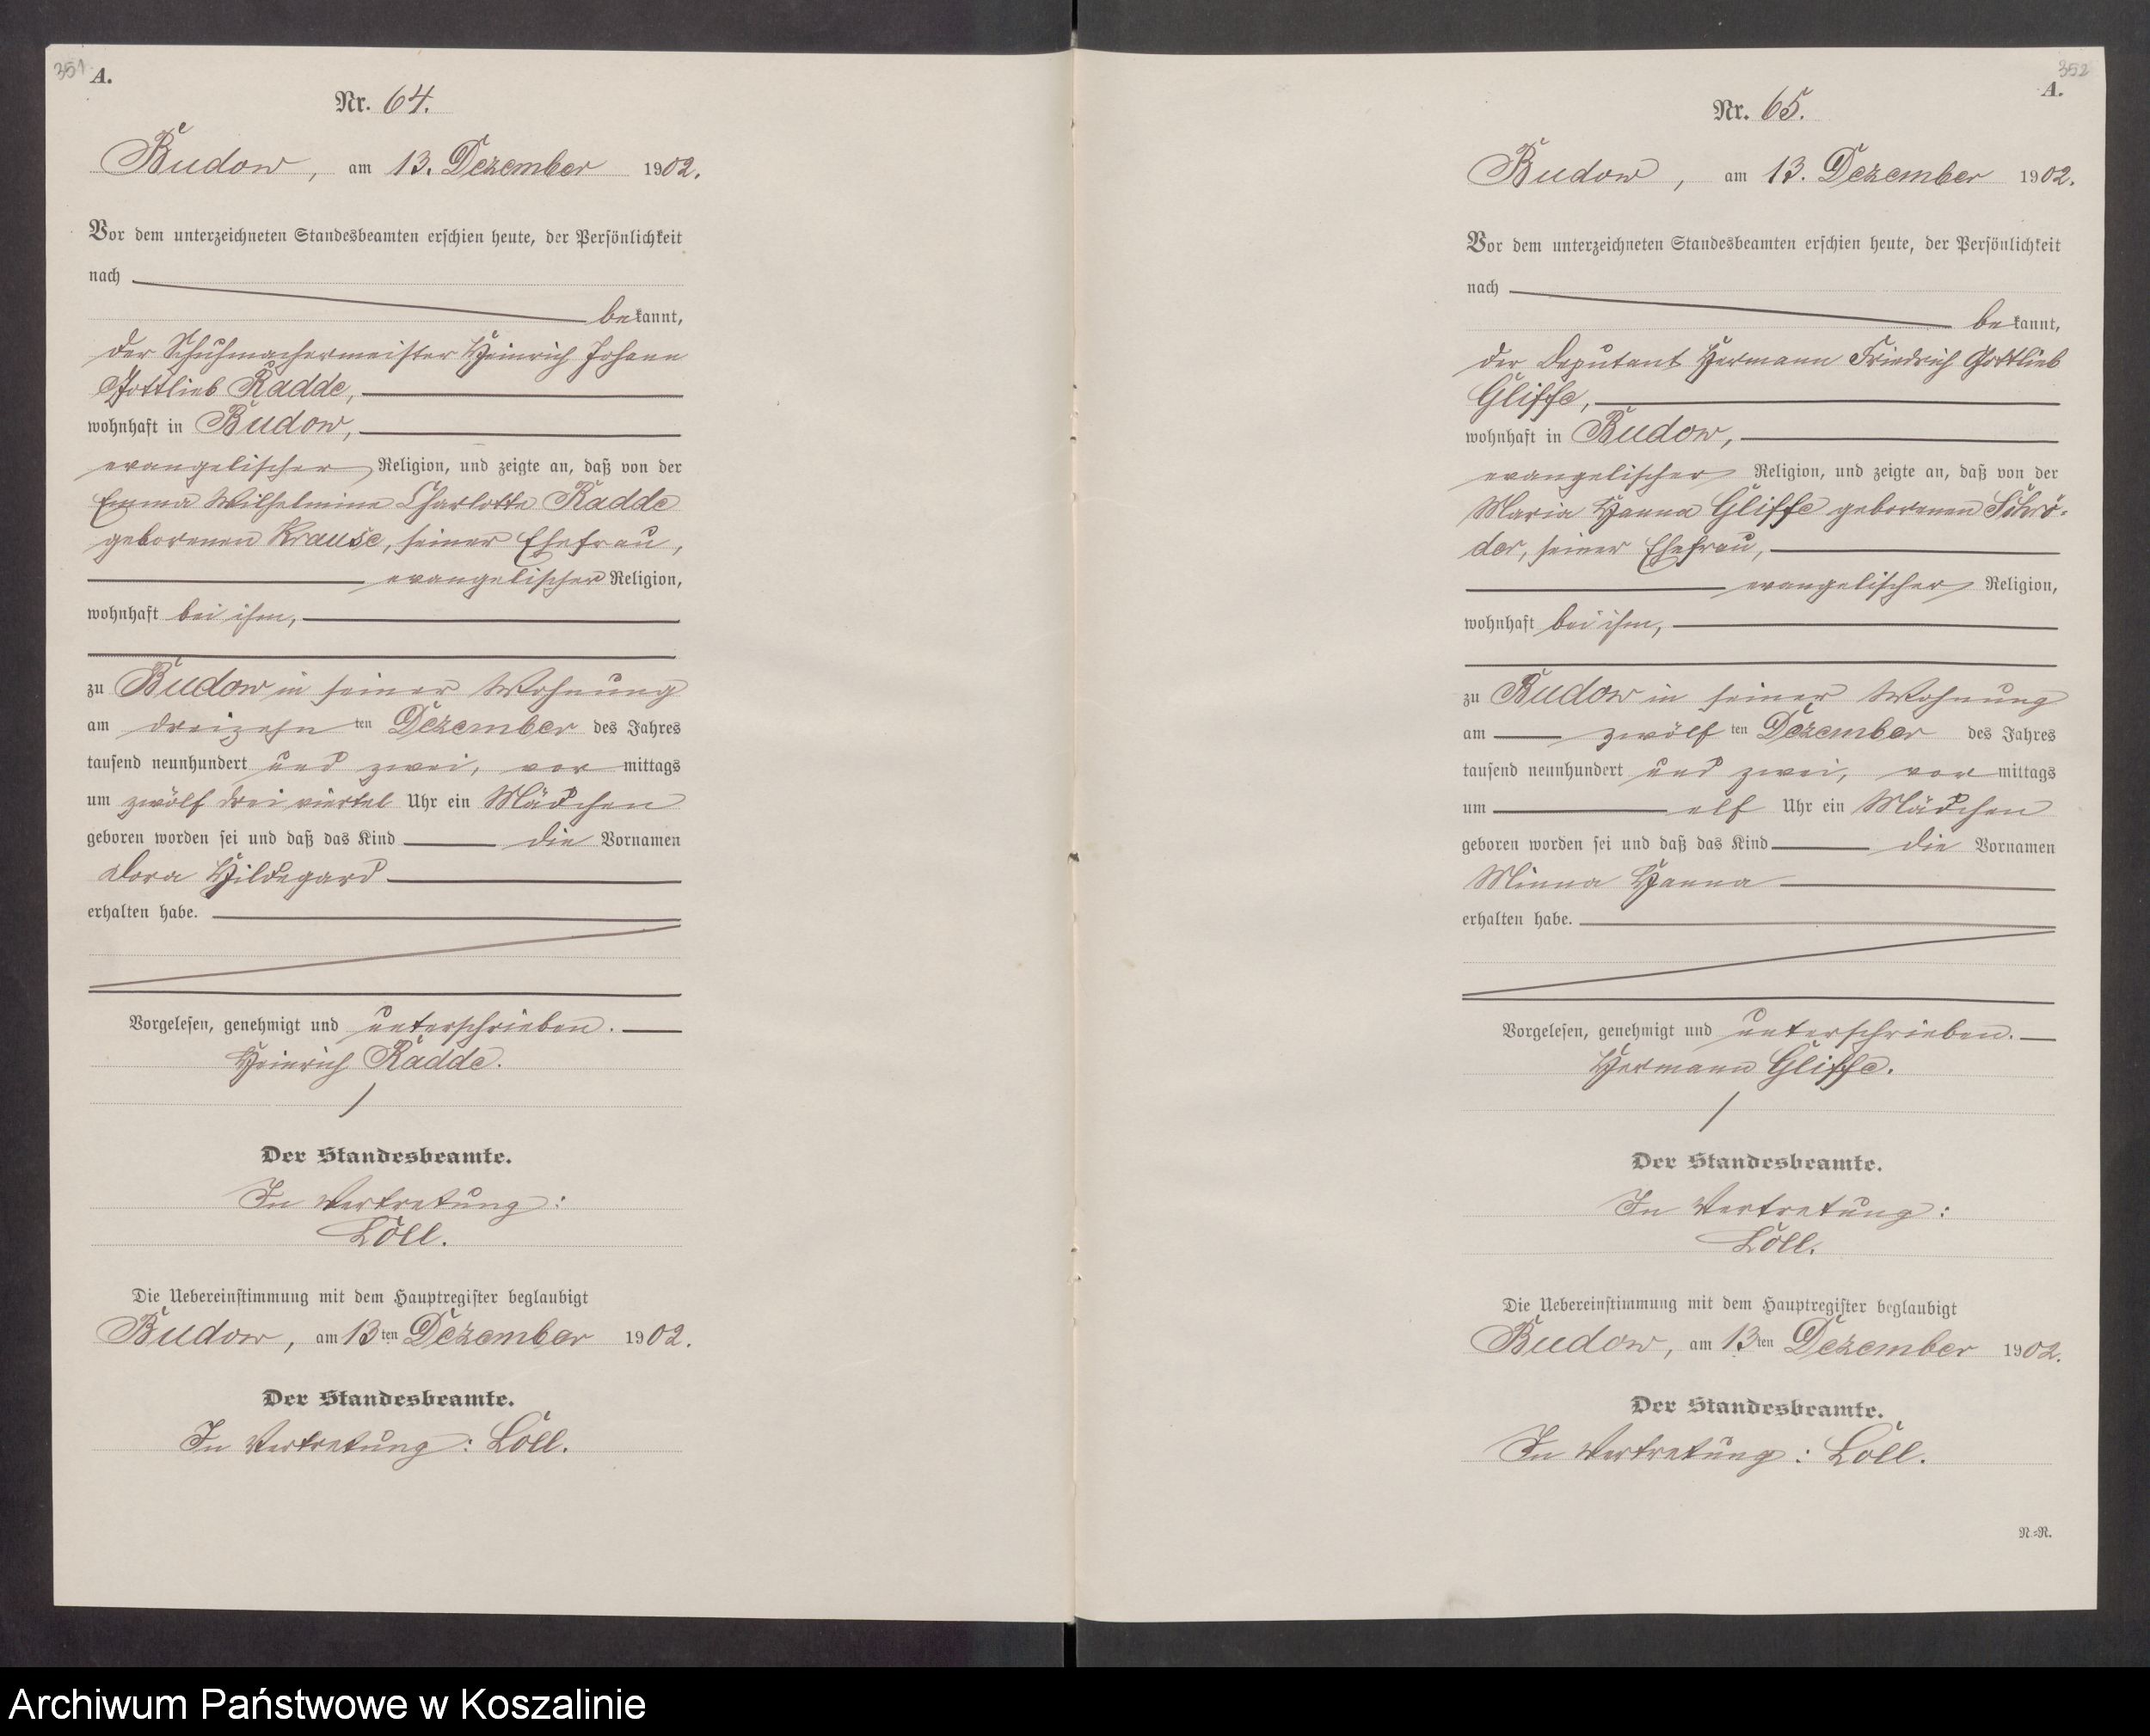 351 A.
Nr. 64.
Budow, am 13. Dezember 1902.
Vor dem unterzeichneten Standesbeamten erschien heute, der Persönlichkeit
nach
bekannt,
der Schuhmachermeister Heinrich Johann
Gottlieb Radde,
wohnhaft in Budow,
evangelischer Religion, und zeigte an, daß von der
Emma Wilhelmine Charlotte Radde
geborenen Krause, seiner Ehefrau,
evangelischer Religion,
wohnhaft bei ihm,
zu Budow in seiner Wohnung
am dreizehn ten Dezember des Jahres
tausend neunhundert und zwei, vor mittags
um zwölf drei viertel Uhr ein Mädchen
geboren worden sei und daß das Kind die Vornamen
Dora Hildegard
erhalten habe.
Vorgelesen, genehmigt und unterschrieben.
Heinrich Radde.
Der Standesbeamte.
In Vertretung:
Löll.
Die Uebereinstimmung mit dem Hauptregister beglaubigt
Budow, am 13ten Dezember 1902.
Der Standesbeamte.
In Vertretung: Löll.
352
A.
Nr. 65.
Budow, am 13. Dezember 1902.
Vor dem unterzeichneten Standesbeamten erschien heute, der Persönlichkeit
nach
bekannt,
der Deputant Hermann Friedrich Gottlieb
Gliffe,
wohnhaft in Budow,
evangelischer Religion, und zeigte an, daß von der
Maria Hanna Gliffe geborenen Schrö-
der, seiner Ehefrau,
evangelischer Religion,
wohnhaft bei ihm,
zu Budow in seiner Wohnung
am zwölf ten Dezember des Jahres
tausend neunhundert und zwei, vor mittags
um elf Uhr ein Mädchen
geboren worden sei und daß das Kind die Vornamen
Minna Hanna
erhalten habe.
Vorgelesen, genehmigt und unterschrieben.
Hermann Gliffe.
Der Standesbeamte.
In Vertretung:
Löll.
Die Uebereinstimmung mit dem Hauptregister beglaubigt
Budow, am 13ten Dezember 1902.
Der Standesbeamte.
In Vertretung: Löll.
N.=N.
Archiwum Państwowe w Koszalinie